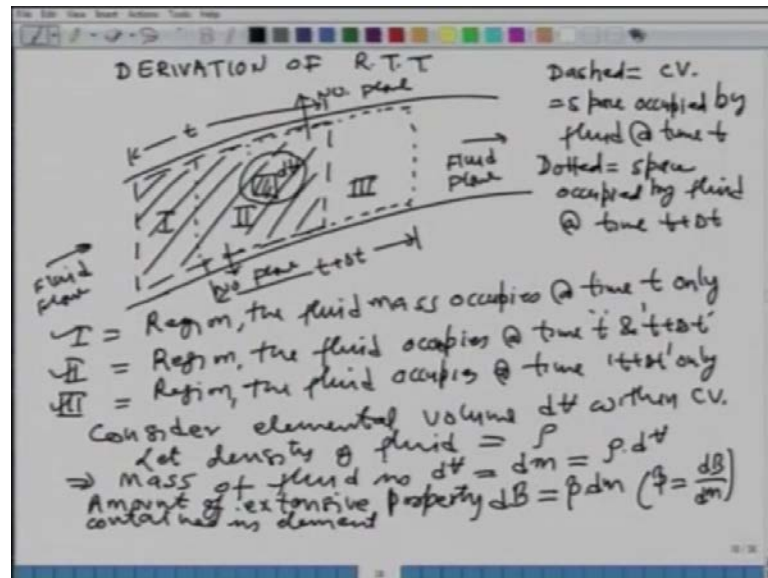 File Edit View Insert Actions Tools Help
DERIVATION OF R.T.T
NO. flow
t
Dashed = CV.
= space occupied by
fluid @ time t
Dotted = space
occupied by fluid
@ time t+Δt
Fluid
flow
I
II
III
d∀
NO flow
t+Δt
Fluid
flow
I = Region, the fluid mass occupies @ time t only
II = Region, the fluid occupies @ time 't' & 't+Δt'
III = Region, the fluid occupies @ time 't+Δt' only
Consider elemental volume d∀ within CV.
Let density of fluid = ρ
⇒ Mass of fluid in d∀ = dm = ρ.d∀
Amount of extensive property dB = β dm (β = dB/dm)
contained in element